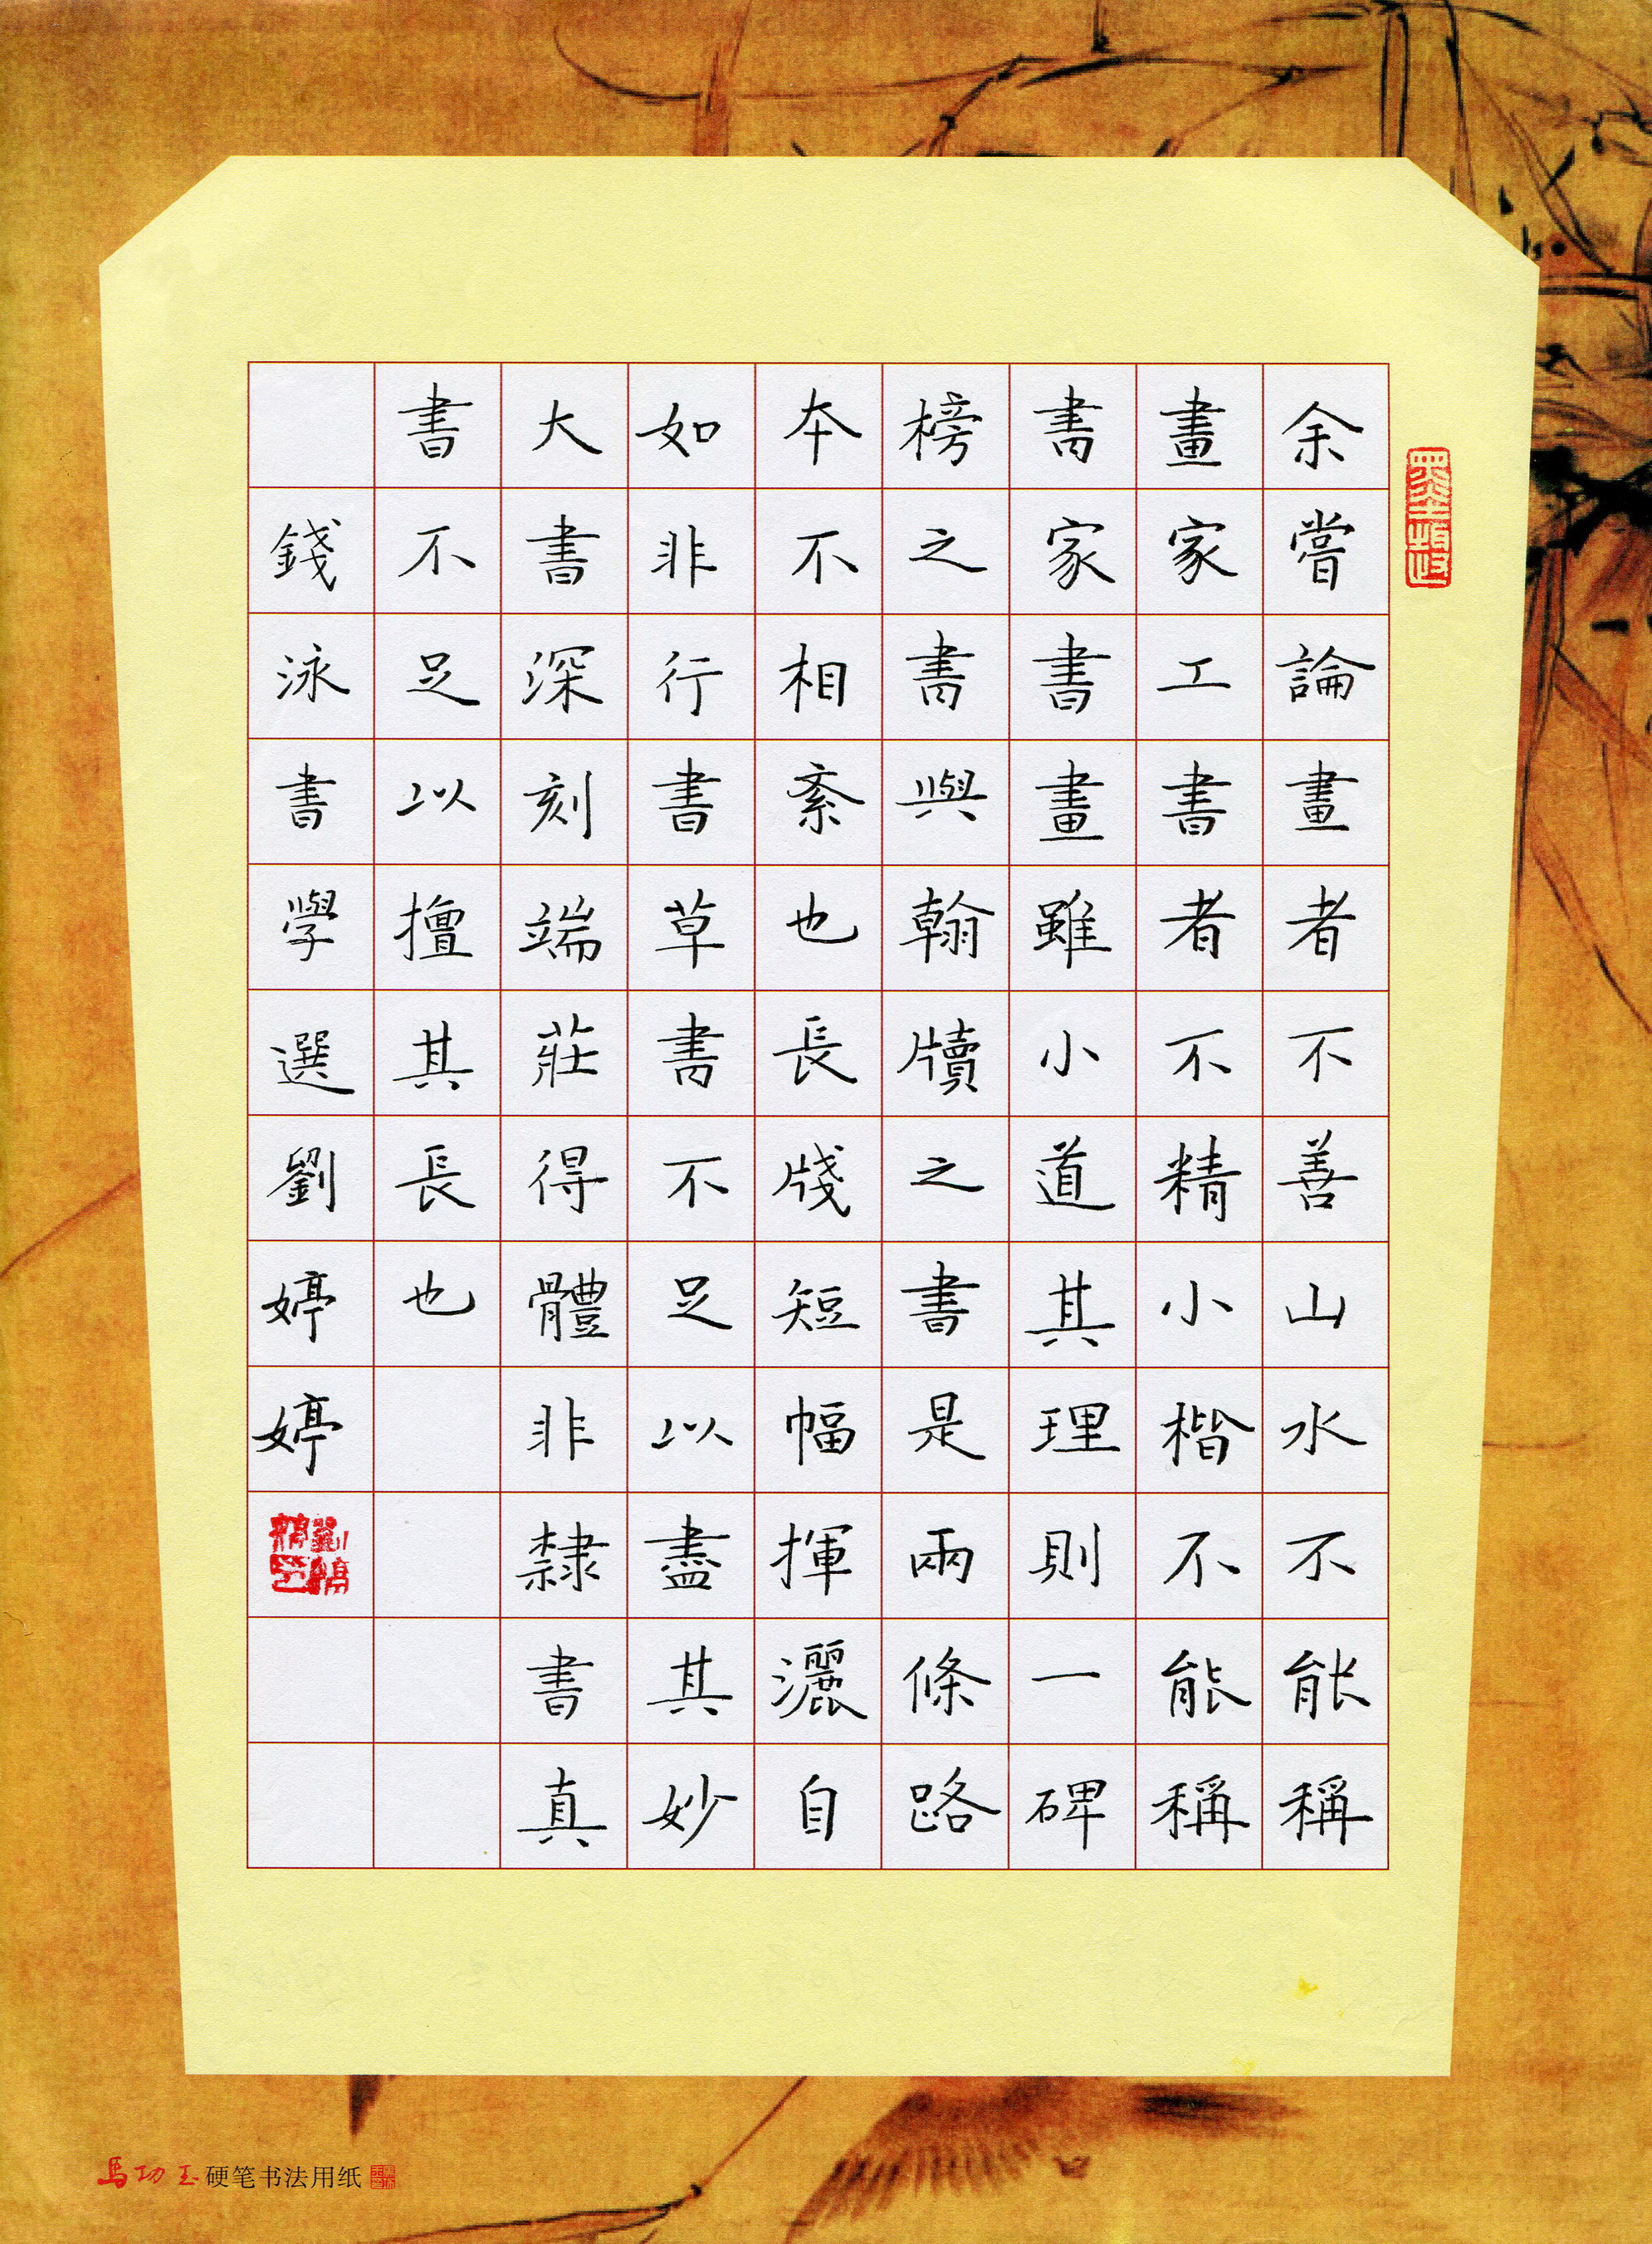 余嘗論畫者不善山水不能稱
畫家工書者不精小楷不能稱
書家書畫雖小道其理則一碑
榜之書與翰牘之書是兩條路
本不相紊也長牋短幅揮灑自
如非行書草書不足以盡其妙
大書深刻端莊得體非隸書真
書不足以擅其長也
錢泳書學選劉婷婷
馬功玉硬笔书法用纸